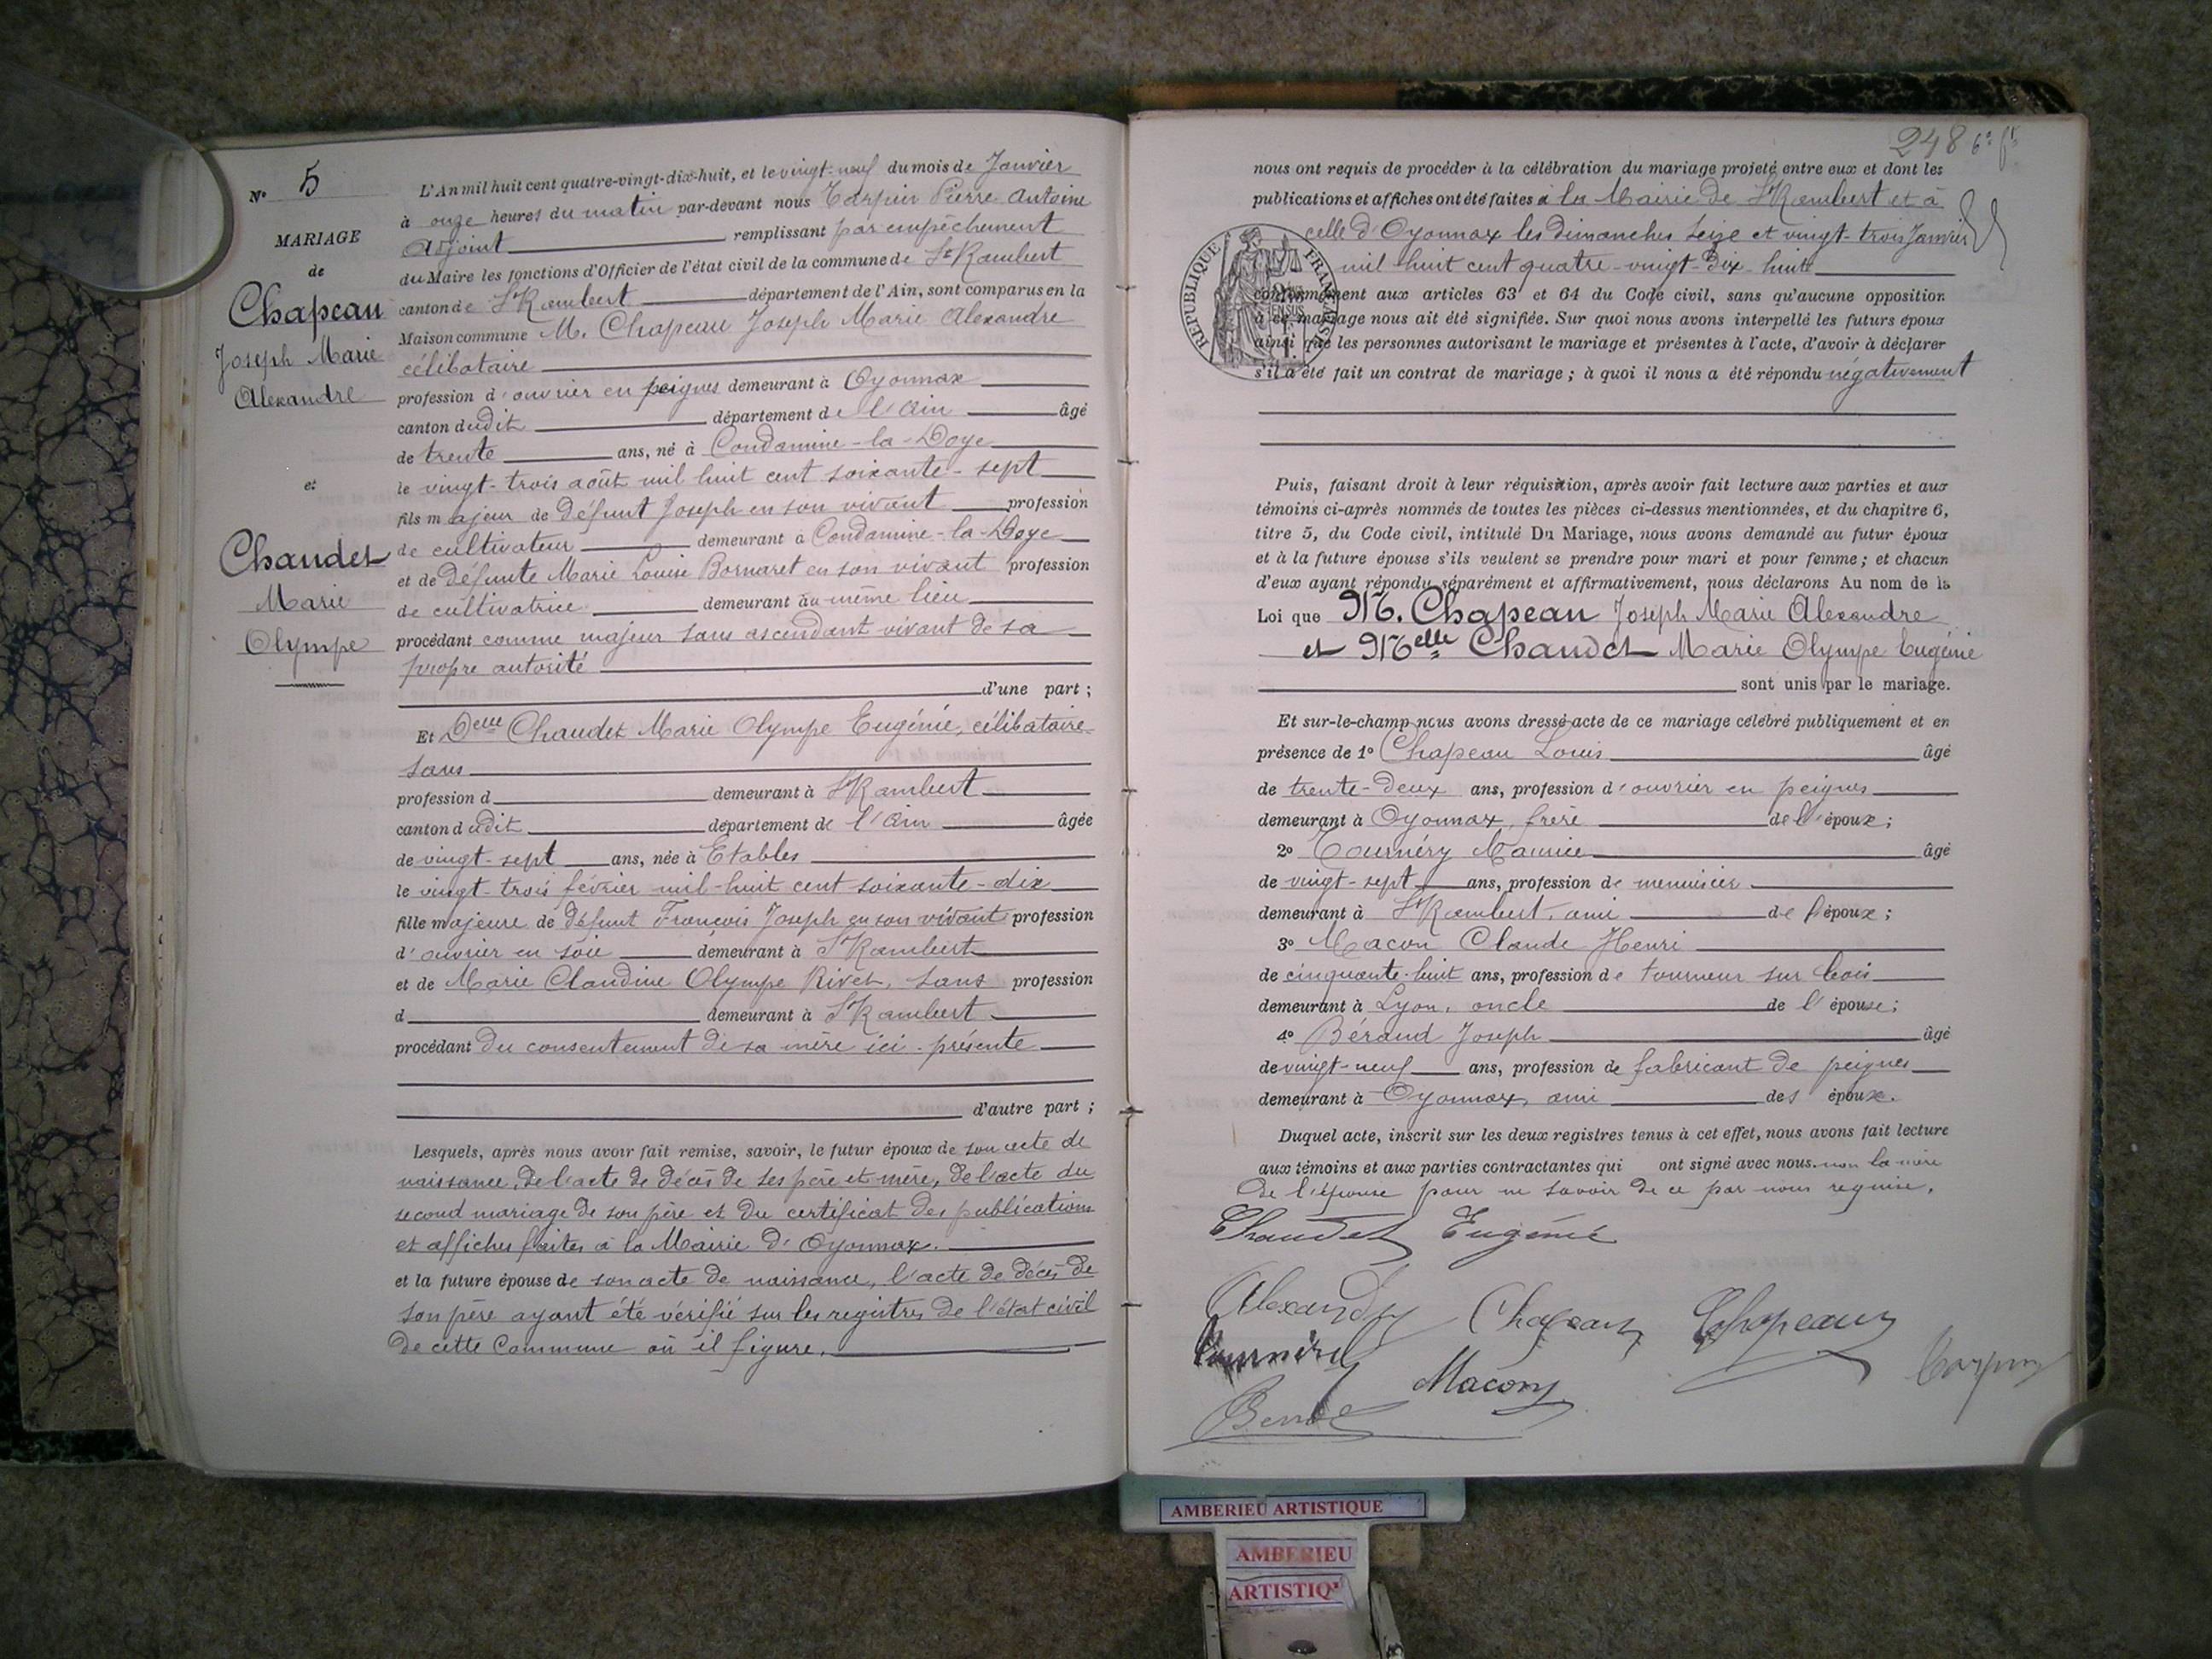 N° 5
MARIAGE
de
Chapeau
Joseph Marie
Alexandre
et
Chaudet
Marie
Olympe
L'An mil huit cent quatre-vingt-dix-huit, et le vingt-neuf du mois de Janvier
à onze heures du matin par-devant nous Tarpin Pierre Antoine
Adjoint remplissant par empêchement
du Maire les fonctions d'Officier de l'état civil de la commune de St Rambert
canton de St Rambert département de l'Ain, sont comparus en la
Maison commune M. Chapeau Joseph Marie Alexandre
célibataire
profession d'ouvrier en peignes demeurant à Oyonnax
canton dudit département de l'Ain âgé
de trente ans, né à Condamine-la-Doye
le vingt-trois août mil huit cent soixante-sept
fils majeur de défunt Joseph en son vivant profession
de cultivateur demeurant à Condamine-la-Doye
et de défunte Marie Louise Bornaret en son vivant profession
de cultivatrice demeurant au même lieu
procédant comme majeur sans ascendant vivant de sa
propre autorité
d'une part ;
Et Delle Chaudet Marie Olympe Eugénie, célibataire
sans
profession d demeurant à St Rambert
canton dudit département de l'Ain âgée
de vingt-sept ans, née à Etables
le vingt-trois février mil-huit cent soixante-dix
fille majeure de défunt François Joseph en son vivant profession
d'ouvrier en soie demeurant à St Rambert
et de Marie Claudine Olympe Rivet, sans profession
d demeurant à St Rambert
procédant du consentement de sa mère ici présente
d'autre part ;
Lesquels, après nous avoir fait remise, savoir, le futur époux de son acte de
naissance, de l'acte de décès de ses père et mère, de l'acte du
second mariage de son père et du certificat des publications
et affiches faites à la Mairie d'Oyonnax.
et la future épouse de son acte de naissance, l'acte de décès de
son père ayant été vérifié sur les registres de l'état civil
de cette Commune où il figure.
248 6e ft
nous ont requis de procéder à la célébration du mariage projeté entre eux et dont les
publications et affiches ont été faites à la Mairie de St Rambert et à
celle d'Oyonnax les dimanches seize et vingt-trois Janvier
mil huit cent quatre-vingt-dix-huit
conformément aux articles 63 et 64 du Code civil, sans qu'aucune opposition
à ce mariage nous ait été signifiée. Sur quoi nous avons interpellé les futurs époux
ainsi que les personnes autorisant le mariage et présentes à l'acte, d'avoir à déclarer
s'il a été fait un contrat de mariage ; à quoi il nous a été répondu négativement
RÉPUBLIQUE FRANÇAISE
Puis, faisant droit à leur réquisition, après avoir fait lecture aux parties et aux
témoins ci-après nommés de toutes les pièces ci-dessus mentionnées, et du chapitre 6,
titre 5, du Code civil, intitulé Du Mariage, nous avons demandé au futur époux
et à la future épouse s'ils veulent se prendre pour mari et pour femme ; et chacun
d'eux ayant répondu séparément et affirmativement, nous déclarons Au nom de la
Loi que M. Chapeau Joseph Marie Alexandre
et Melle Chaudet Marie Olympe Eugénie
sont unis par le mariage.
Et sur-le-champ nous avons dressé acte de ce mariage célébré publiquement et en
présence de 1° Chapeau Louis âgé
de trente-deux ans, profession d'ouvrier en peignes
demeurant à Oyonnax, frère de l'époux ;
2° Cournéry Maurice âgé
de vingt-sept ans, profession de menuisier
demeurant à St Rambert, ami de l'époux ;
3° Macon Claude Henri
de cinquante-huit ans, profession de tourneur sur bois
demeurant à Lyon, oncle de l'épouse ;
4° Béraud Joseph âgé
de vingt-neuf ans, profession de fabricant de peignes
demeurant à Oyonnax, ami des époux.
Duquel acte, inscrit sur les deux registres tenus à cet effet, nous avons fait lecture
aux témoins et aux parties contractantes qui ont signé avec nous. non la mère
de l'épouse pour ne savoir de ce par nous requise.
Chaudet Eugénie
Alexandre Chapeau Chapeau
Cournéry Macon Tarpin
AMBERIEU ARTISTIQUE
AMBERIEU
ARTISTIQ